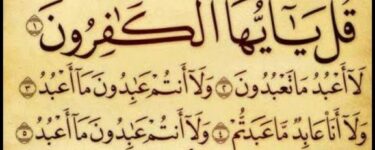 قُلْ يَٰٓأَيُّهَا ٱلْكَٰفِرُونَ ١
لَآ أَعْبُدُ مَا تَعْبُدُونَ ٢ وَلَآ أَنتُمْ عَٰبِدُونَ مَآ أَعْبُدُ ٣
وَلَآ أَنَا۠ عَابِدٌ مَّا عَبَدتُّمْ ٤ وَلَآ أَنتُمْ عَٰبِدُونَ مَآ أَعْبُدُ ٥